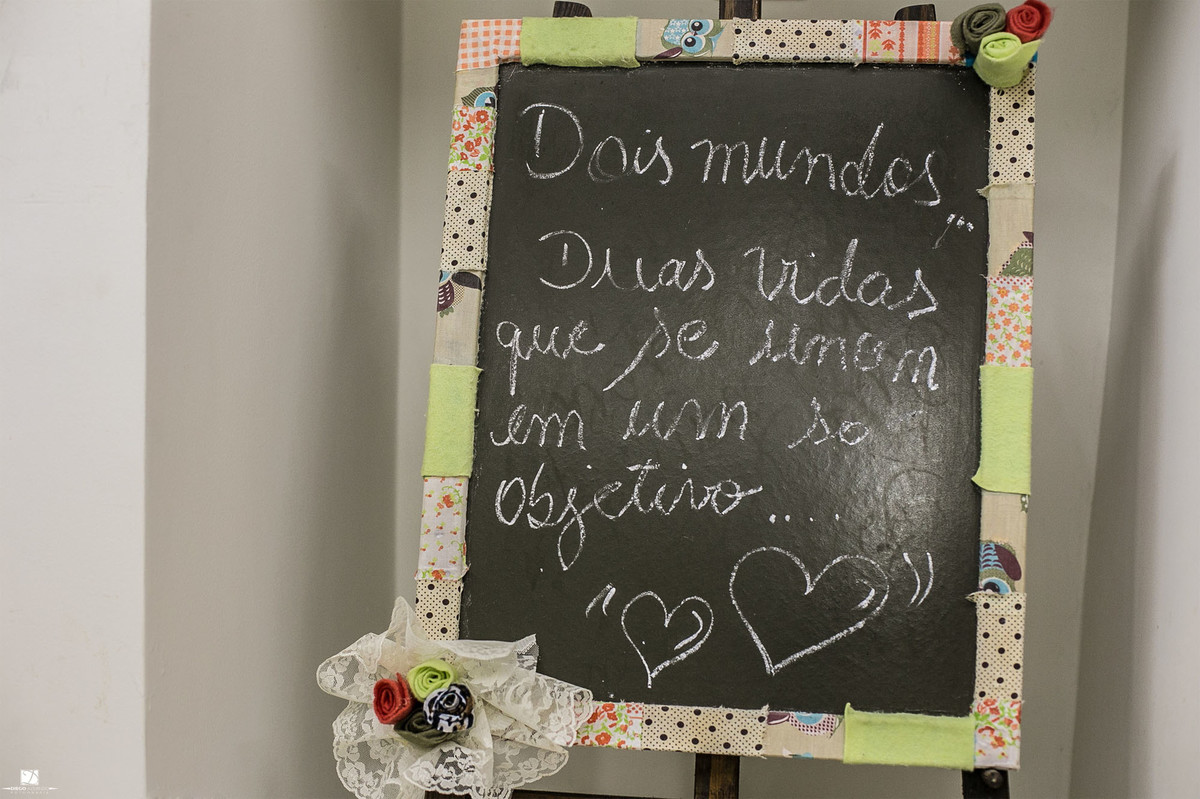 Dois mundos,...
Duas vidas
que se unem
em um so
objetivo.....